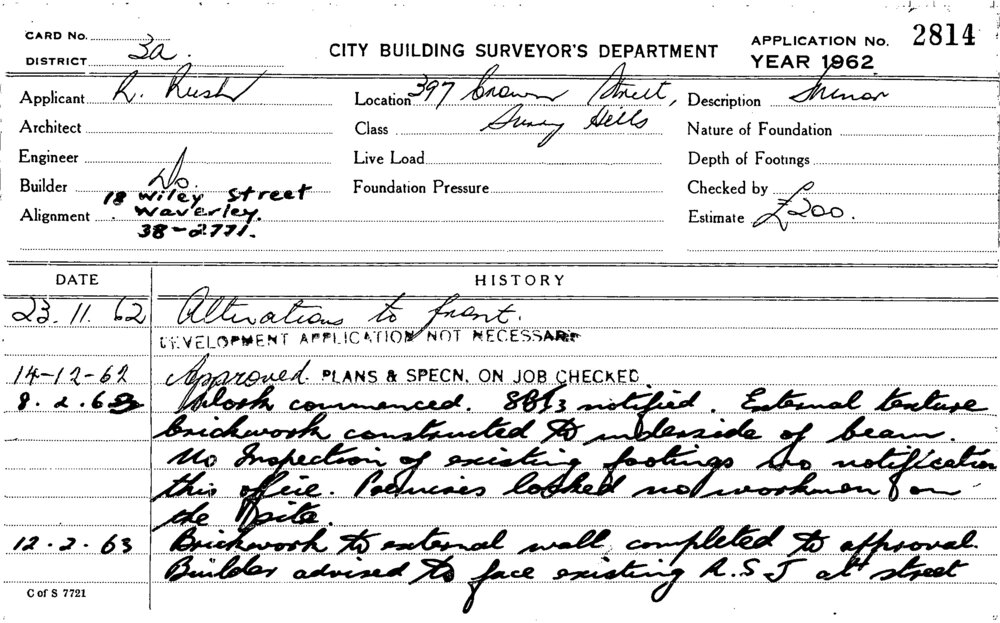 CARD No.
DISTRICT 3a.
CITY BUILDING SURVEYOR'S DEPARTMENT
APPLICATION No. 2814
YEAR 1962
Applicant R. Rush
Location 397 Crown Street,
Description Minor
Architect
Class Surry Hills
Nature of Foundation
Engineer
Live Load
Depth of Footings
Builder Do.
18 Wiley Street
Foundation Pressure
Checked by
Alignment Waverley.
38-2771.
Estimate £200.
DATE HISTORY
23.11.62 Alterations to front.
DEVELOPMENT APPLICATION NOT NECESSARY
14-12-62 Approved. PLANS & SPECN. ON JOB CHECKED
8.2.63 Work commenced. notified. External texture
brickwork constructed to underside of beam.
No Inspection of existing footings no notification
this office. Premises locked no workmen on
the site.
12.2.63 Brickwork to external wall completed to approval.
Builder advised to face existing R.S.J at street
C of S 7721